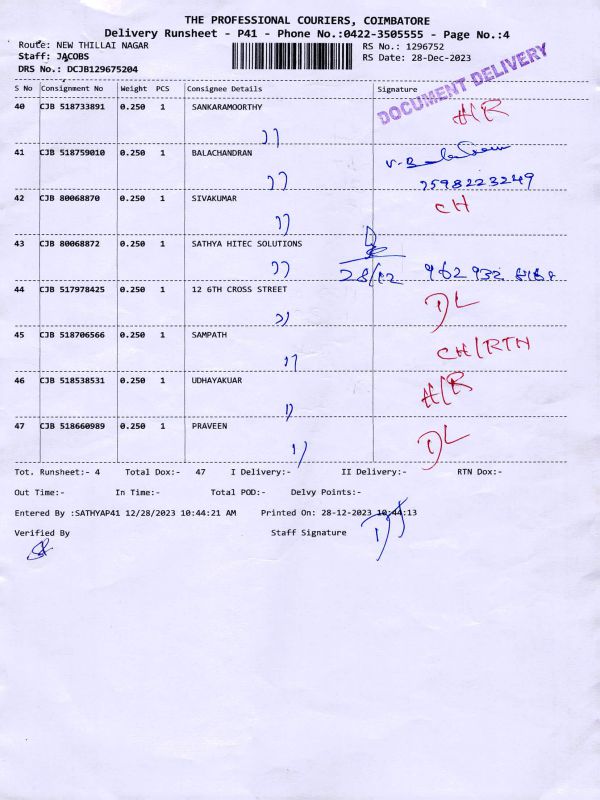 THE PROFESSIONAL COURIERS, COIMBATORE
Delivery Runsheet - P41 - Phone No.:0422-3505555 - Page No.:4
Route: NEW THILLAI NAGAR RS No.: 1296752
Staff: JACOBS RS Date: 28-Dec-2023
DRS No.: DCJB129675204
DOCUMENT DELIVERY
S No Consignment No Weight PCS Consignee Details Signature
40 CJB 518733891 0.250 1 SANKARAMOORTHY H/R
41 CJB 518759010 0.250 1 BALACHANDRAN
7598223249
42 CJB 80068870 0.250 1 SIVAKUMAR CH
43 CJB 80068872 0.250 1 SATHYA HITEC SOLUTIONS
28/12 962 932
44 CJB 517978425 0.250 1 12 6TH CROSS STREET DL
45 CJB 518706566 0.250 1 SAMPATH CH/RTN
46 CJB 518538531 0.250 1 UDHAYAKUAR H/R
47 CJB 518660989 0.250 1 PRAVEEN DL
Tot. Runsheet:- 4 Total Dox:- 47 I Delivery:- II Delivery:- RTN Dox:-
Out Time:- In Time:- Total POD:- Delvy Points:-
Entered By :SATHYAP41 12/28/2023 10:44:21 AM Printed On: 28-12-2023 10:44:13
Verified By Staff Signature